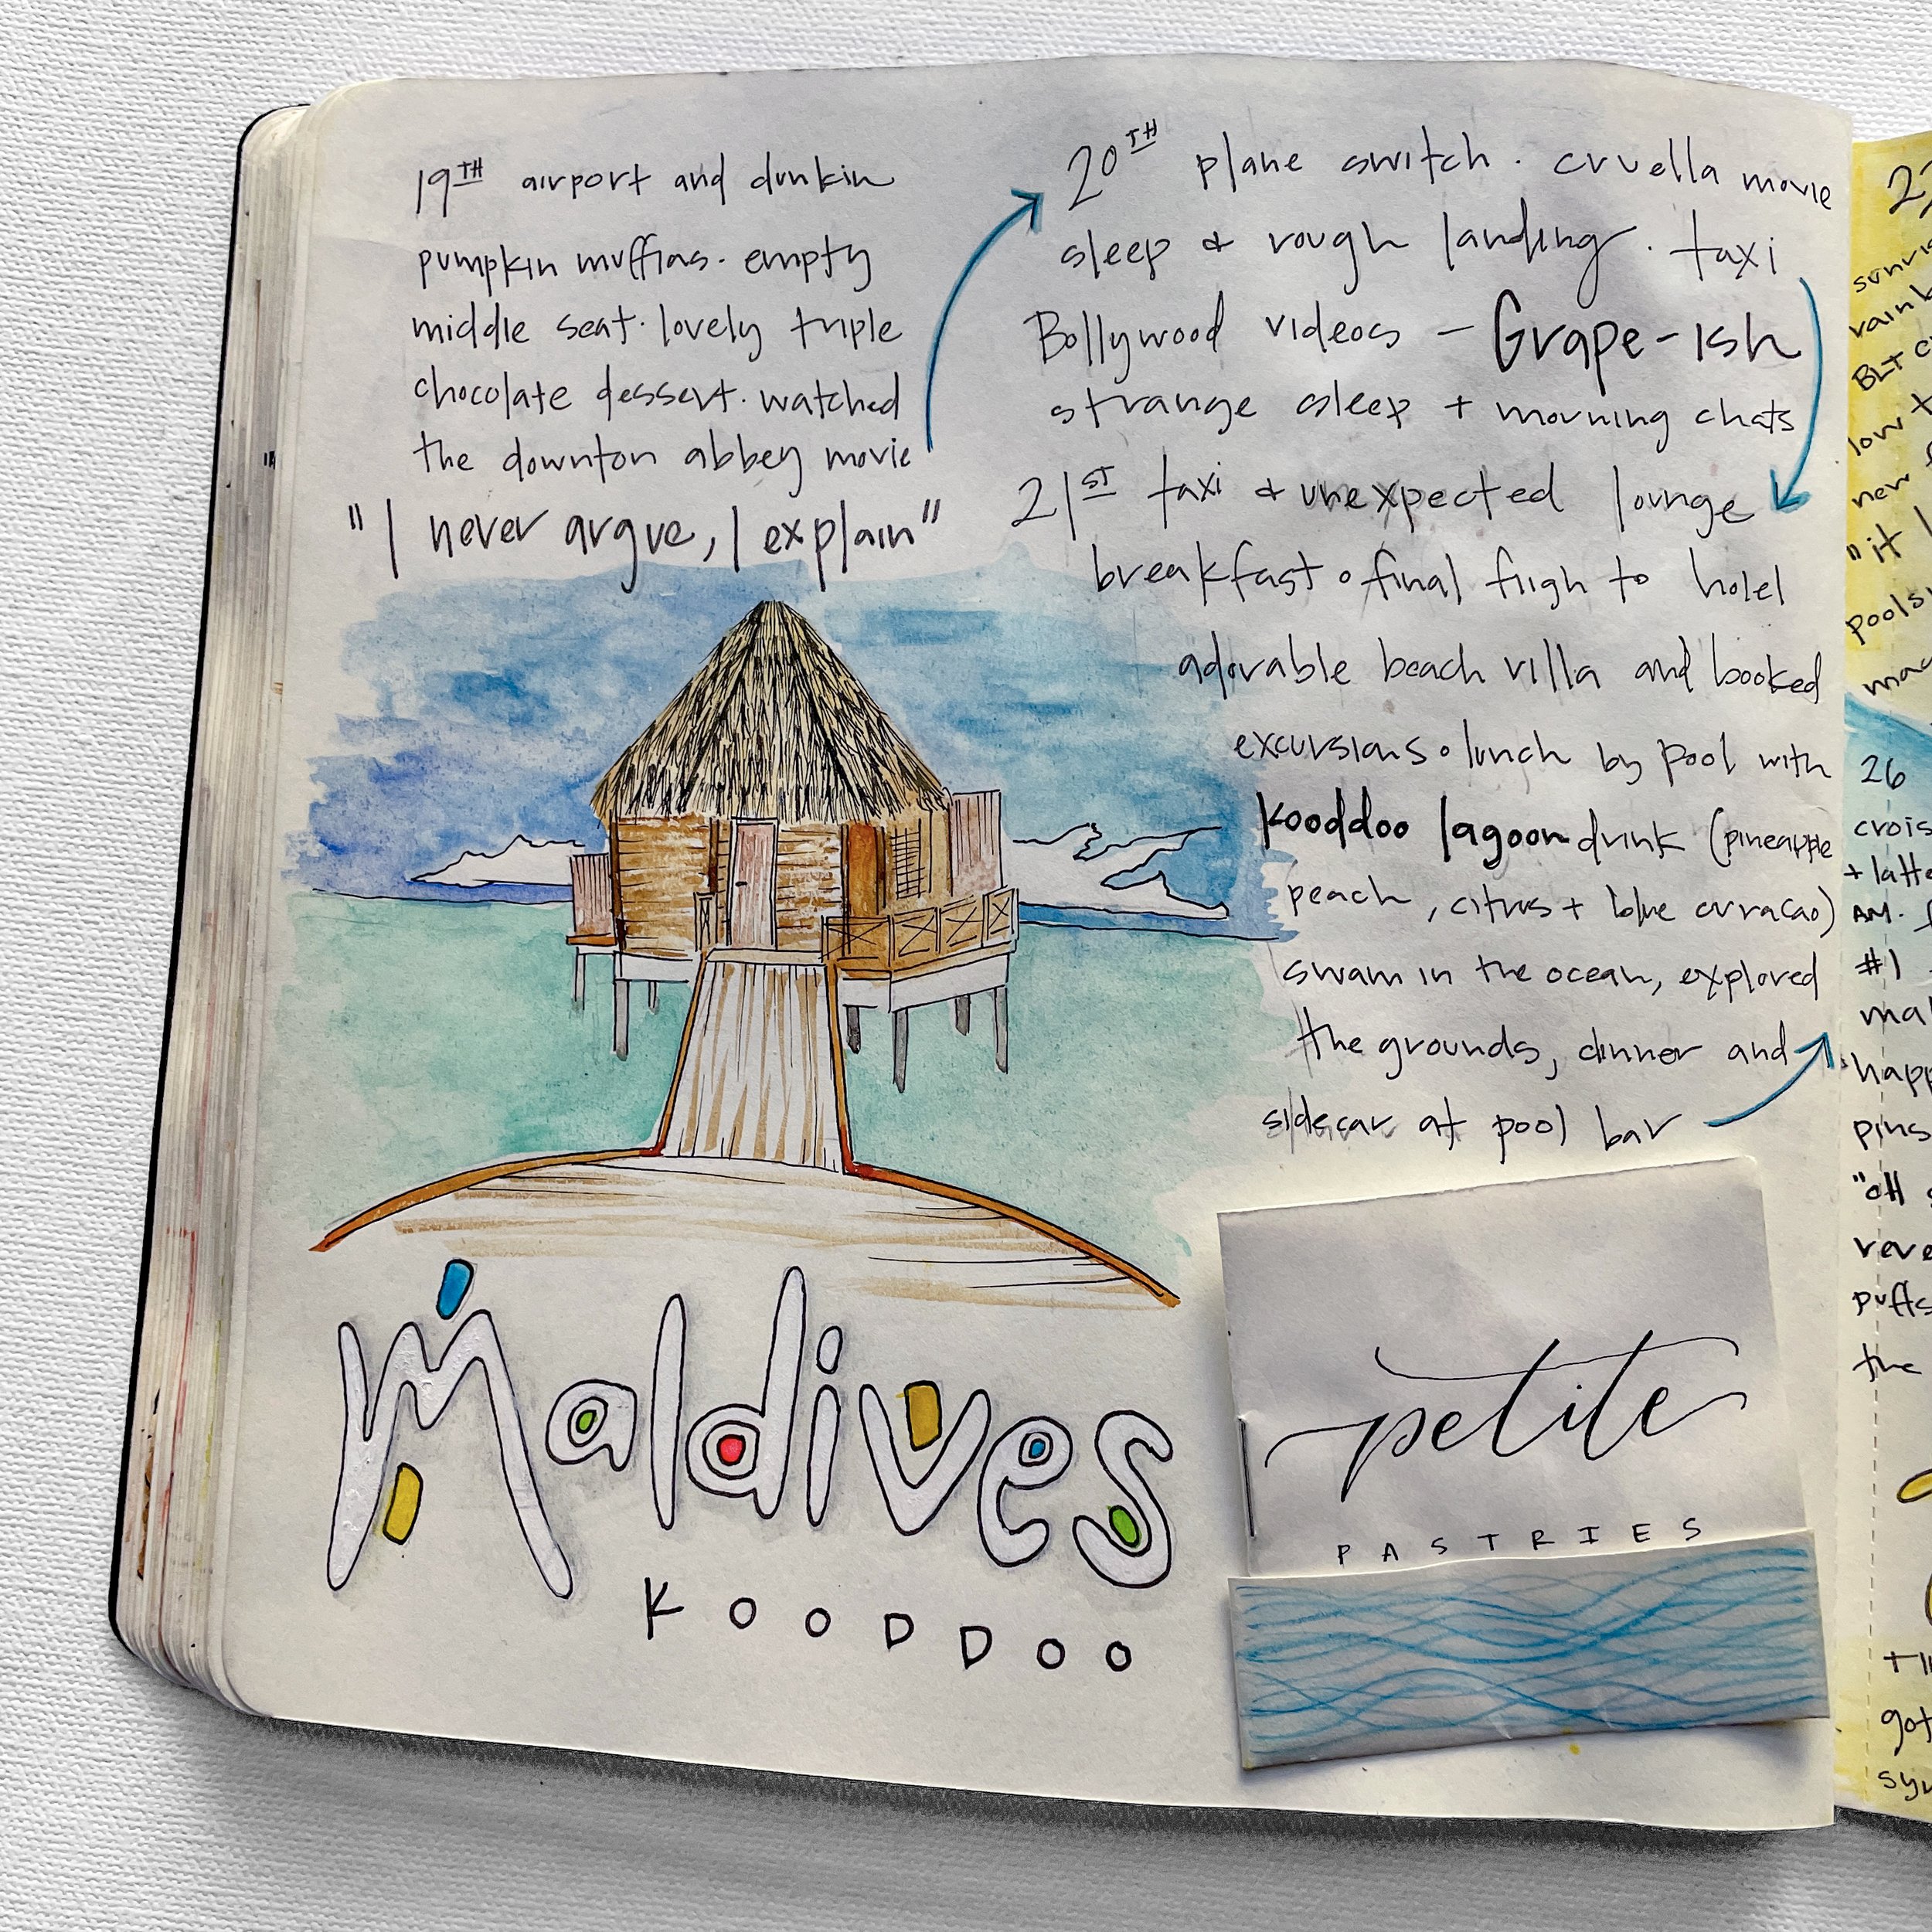 19TH airport and dunkin
pumpkin muffins. empty
middle seat. lovely triple
chocolate dessert. watched
the downton abbey movie
"I never argue, I explain"
20TH plane switch. cruella movie
sleep & rough landing. taxi
Bollywood videos – Grape-ish
strange sleep + morning chats
21ST taxi & unexpected lounge
breakfast. final fligh to hotel
adorable beach villa and booked
excursions. lunch by pool with
Kooddoo lagoon drink (pineapple
peach, citrus + blue curacao)
swam in the ocean, explored
the grounds, dinner and
sidecar at pool bar
Maldives
KOODDOO
petite
PASTRIES
BLT
low
new
"it
pools
26
+ latte
AM.
#1
"oh
the